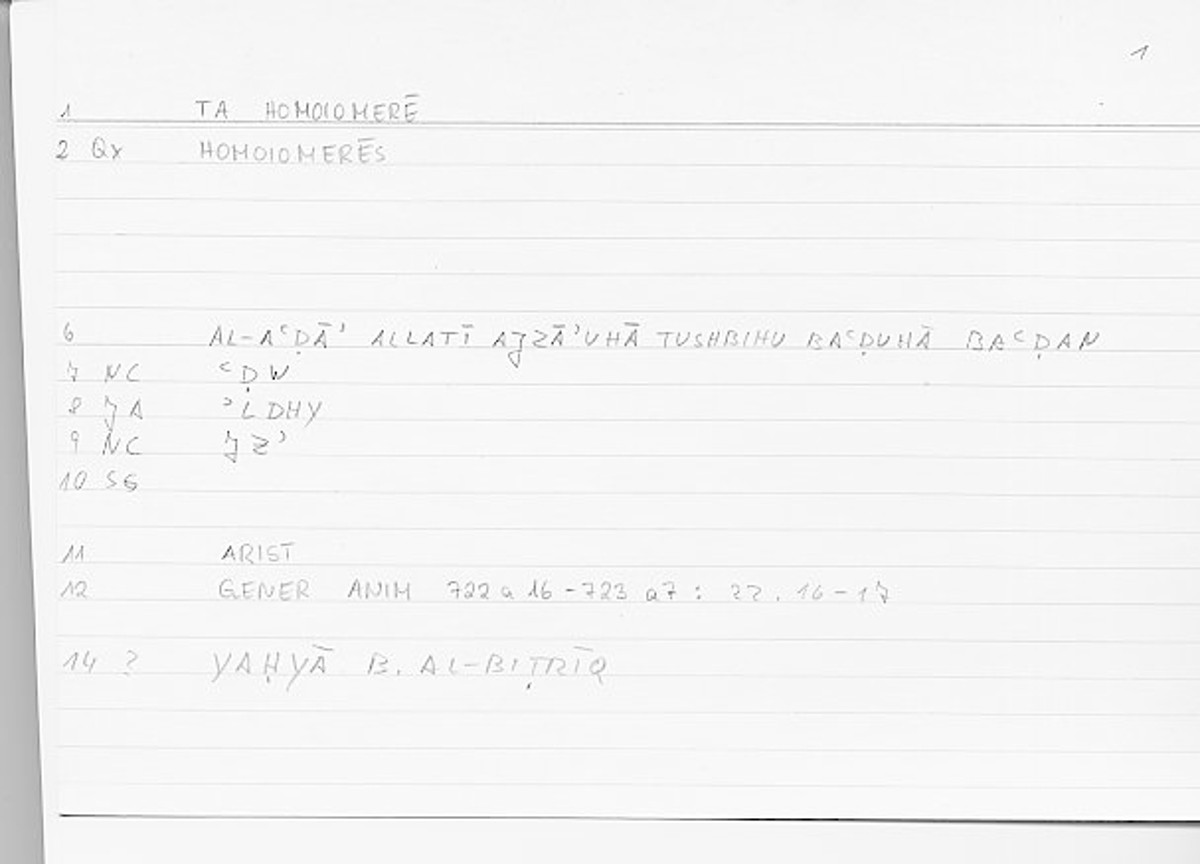 1
1 TA HOMOIOMERĒ
2 Qx HOMOIOMERĒS
6 AL-AʿḌĀʾ ALLATĪ AJZĀʾUHĀ TUSHBIHU BAʿḌUHĀ BAʿḌAN
7 NC ʿḌW
8 JA ʾLDHY
9 NC JZʾ
10 SG
11 ARIST
12 GENER ANIM 722 a 16 - 723 a7 : 22. 16 - 17
14 ? YAḤYĀ B. AL-BIṬRĪQ